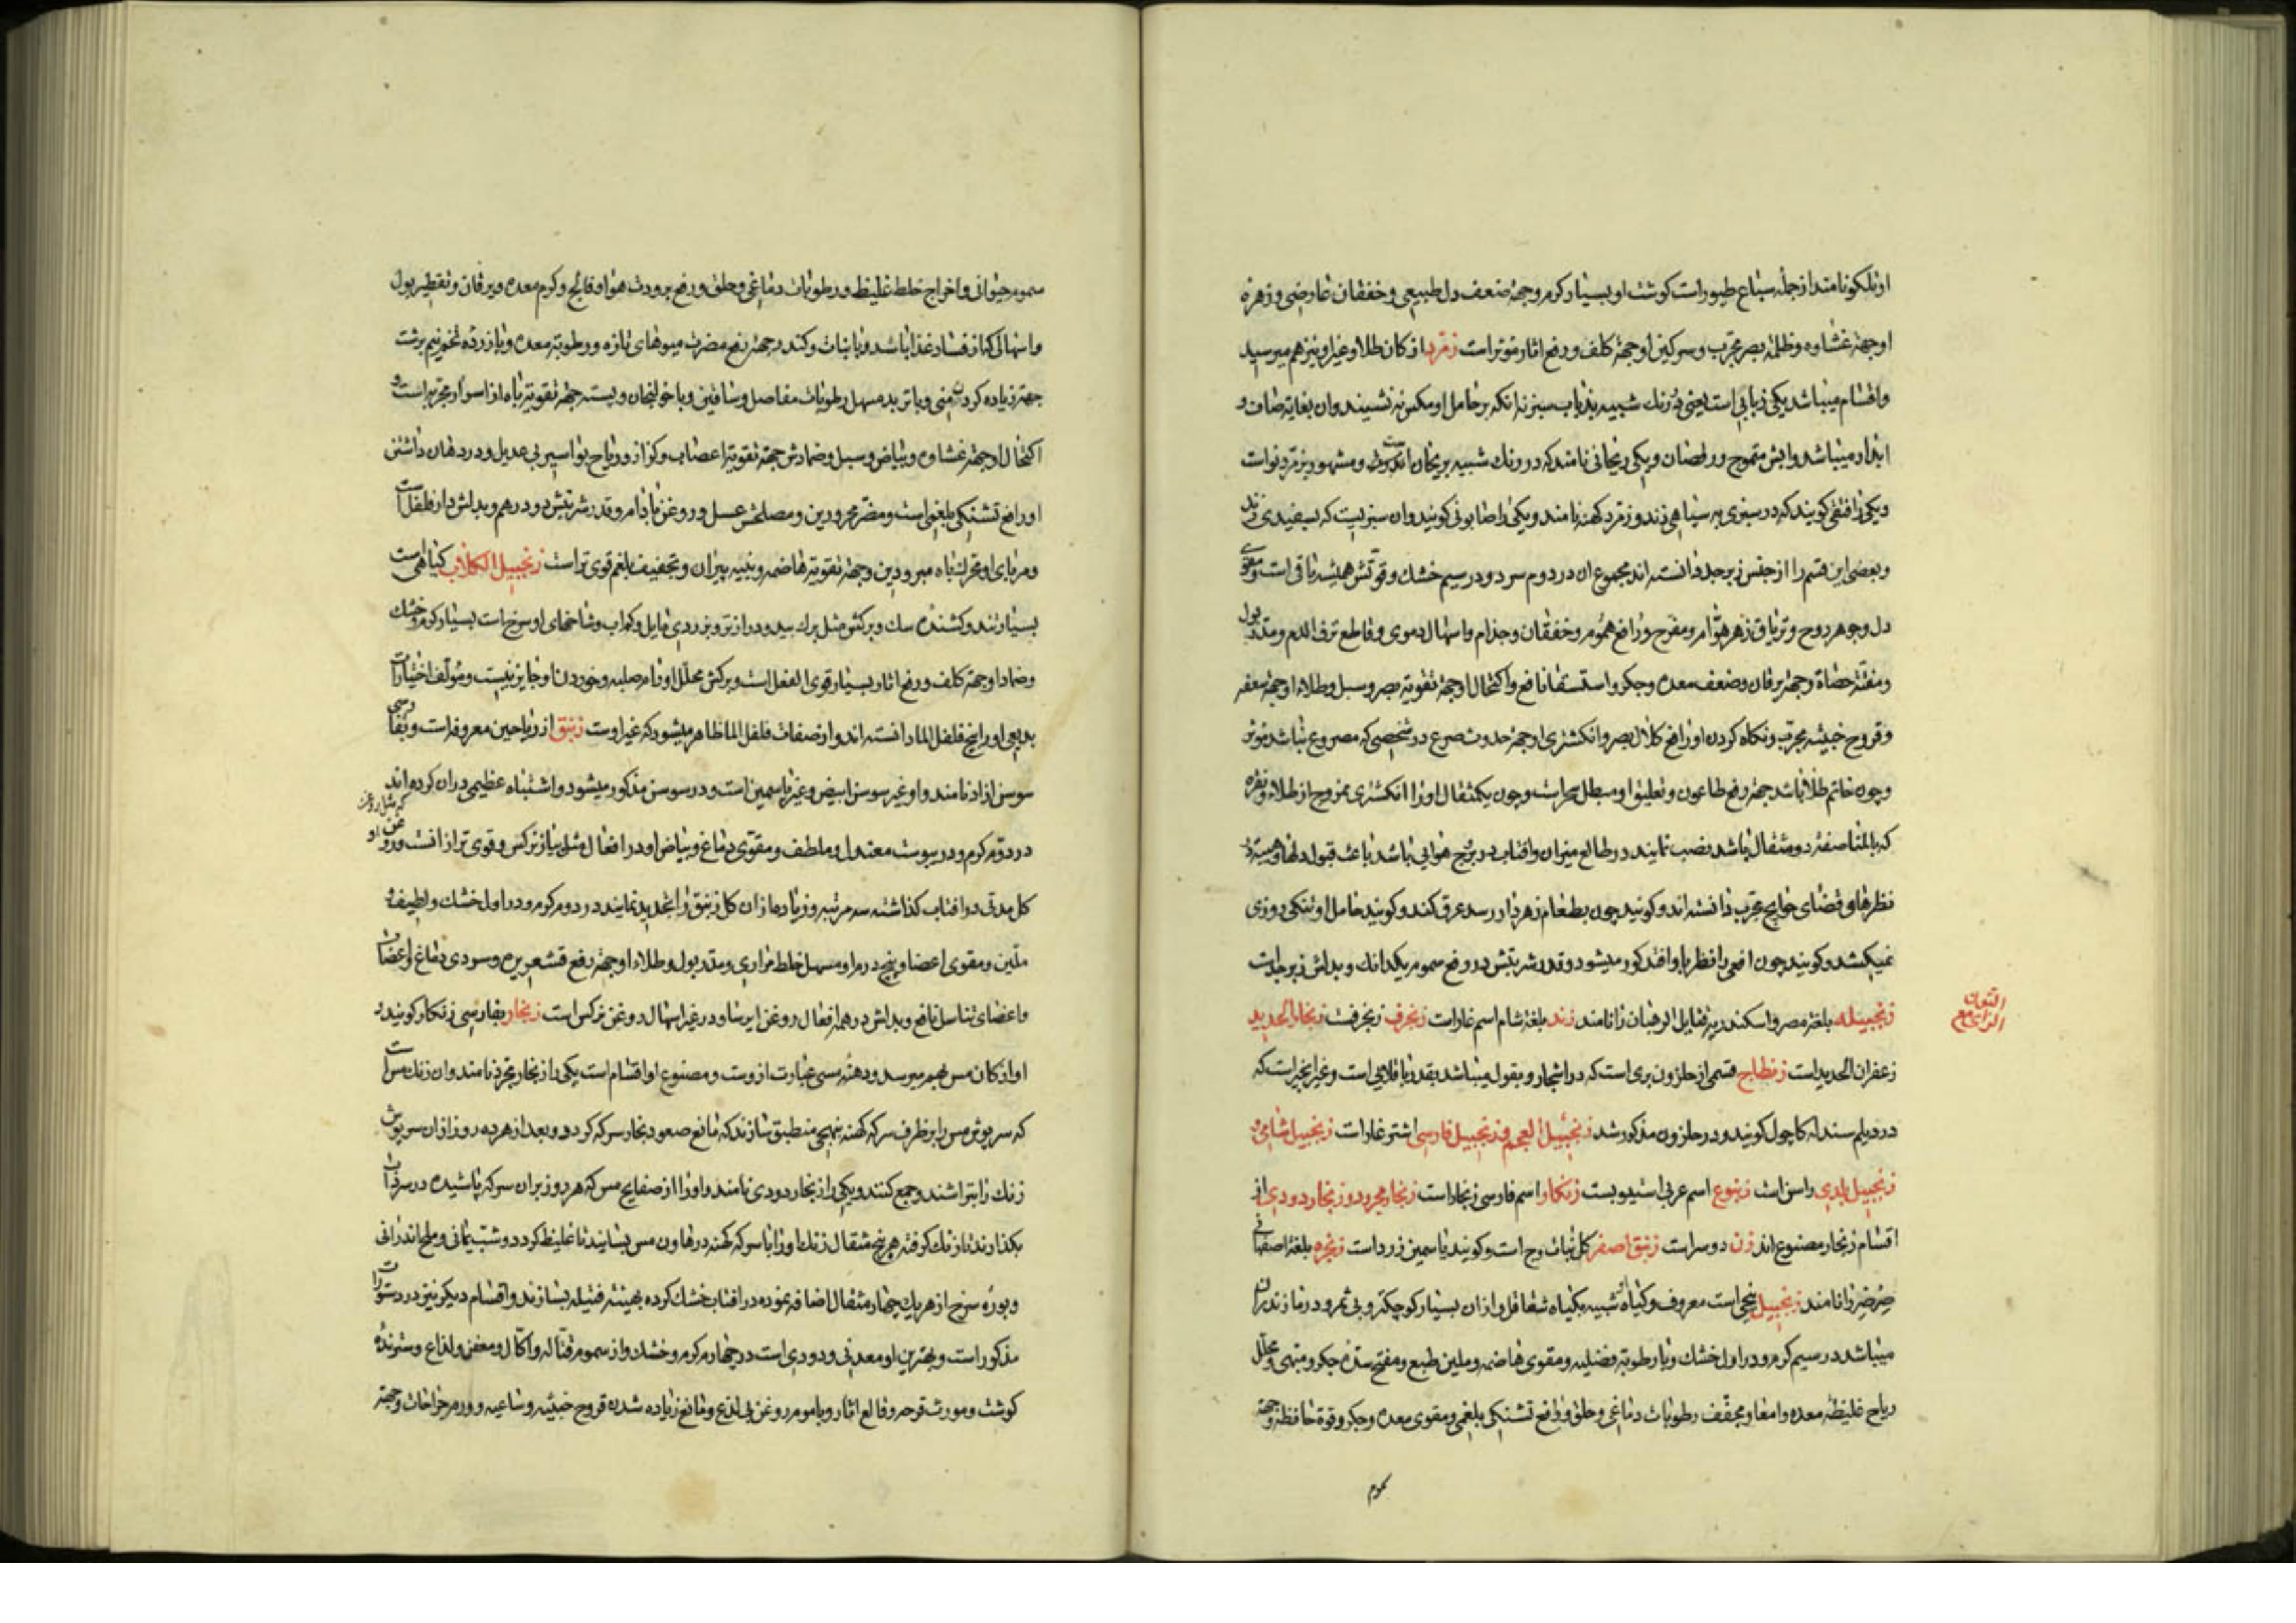 اوتلکو نامند از جمله سباع طیور است کوشت او بسیار کرم و جهة ضعف دل طبیعی و خفقان عارضی و زهرهٔ
او جهة غشاوه و ظلمة بصر مجرب و سرکین او جهة کلف و رفع اثار موثر است زمرد از کان طلا و غیر او نیز بهم میرسد
و اقسام میباشد یکی ذبابی است یعنی در رنك شبیه بذباب سبز نه انکه بر حامل او مکس نه نشیند و ان بغایة صاف و
ابدار میباشد و ابش متموج و رخشان و یکی ریحانی نامند که در رنك شبیه بریحان است و مشهور بزمرد نو است
و یکی را فستقی کویند که در سبزی به سیاهی زند و زمرد کهنه نامند و یکی را صابونی کویند و ان سبزیست که بسفیدی زند
و بعضی این قسم را از جنس زبرجد دانسته اند مجموع ان در دوم سرد و در سیم خشك و قوتش همیشه باقی است و مقوی
دل و جوهر روح و تریاق زهر هوام و مفرح و رافع هموم و خفقان و جذام و اسهال دموی و قاطع نزف الدم و مدر بول
و مفتة حصاة و جهة یرقان و ضعف معده و جکر و استسقا نافع و اکتحال او جهة تقویة بصر و سبل و طلاء او جهة سعفه
و قروح خبیثه مجرب و نکاه کردن او رافع کلال بصر و انکشتری او جهة حدوث صرع در شخصی که مصروع نباشد موثر
و چون خاتم طلا باشد جهة رفع طاعون و تعلیق او مبطل سحر است و چون یکمثقال او را انکشتری ممزوج از طلا و نقره
که بالمناصفه دو مثقال باشد نصب نمایند در طالع میزان و افتاب در برج هوایی باشد باعث قبول دلها و هیبت در
نظرها و قضای حوایج مجرب دانسته اند و کویند چون بطعام زهردار رسد عرق کند و کویند حامل او تنکی روزی
نمیکشد و کویند چون افعی را نظر باو افتد کور میشود و قدر شربتش در رفع سموم یکدانك و بدلش زبرجد است
زنجبیله بلغة مصر و اسکندریه قنابل الرهبان را نامند زند بلغة شام اسم غار است زنجرف زنجرفت زنجار الحدید
زعفران الحدید است زنطاج قسمی از حلزون بری است که در اشجار و بقول میباشد بقدر باقلایی است و غیر انجیر است که
در دیلم سندله کاچول کویند و در حلزون مذکور شد زنجبیل العجم و زنجبیل فارسی اشترغاز است زنجبیل شامی و
زنجبیل بلدی راسن است زنبوع اسم عربی استیوبست زنکار اسم فارسی زنجار است زنجار مجرود و زنجار دودی از
اقسام زنجار مصنوع اند زن دوسر است زنبق اصفر کل نبات وج است و کویند یاسمین زرد است زنجره بلغة اصفهانی
صرصر را نامند زنجبیل بیخی است معروف و کیاه او شبیه بکیاه شقاقل و از ان بسیار کوچکتر و بی ثمر و در مازندران
میباشد در سیم کرم و در اول خشك و با رطوبة فضلیه و مقوی هاضمه و ملین طبع و مفتح سده جکر و مبهی و محلل
ریاح غلیظه معده و امعا و مجفف رطوبات دماغی و حلق و رافع تشنکی بلغمی و مقوی معده و جکر و قوة حافظه و جهة
سموم
التون
الزای مع
سموم حیوانی و اخراج خلط غلیظ و رطوبات دماغی و حلق و رفع برودت هوا و فالج و کرم معده و یرقان و تقطیر بول
و اسهالی که از فساد غذا باشد و با نبات و کندر جهة رفع مضرت میوهای تازه و رطوبة معده و با زرده تخم نیم برشت
جهة زیاده کردن منی و با تربد مسهل رطوبات مفاصل و ساقین و با خولنجان و پسته جهة تقویة باه از اسرار مجربه است و
اکتحال او جهة غشاوه و بیاض و سبل و ضمادش جهة تقویة اعصاب و کزاز و ریاح بواسیر بی عدیل و در دهان داشتن
او رافع تشنکی بلغمی است و مضر محرورین و مصلحش عسل و روغن بادام و قدر شربتش دو درهم و بدلش دارفلفل است
و مربای او محرك باه مبرودین و جهة تقویة هاضمه و بنیه پیران و تجفیف بلغم قوی تر است زنجبیل الکلاب کیاهی است
بسیار تند و کشنده سك و برکش مثل برك بید و درازتر و بزردی مایل و کمآب و شاخهای او سرخ است بسیار کرم و خشك
و ضماد او جهة کلف و رفع اثار بسیار قوی الفعل است و برکش محلل اورام صلبه و خوردن او جایز نیست و مولف اختیارات
بدیعی او را بیخ فلفل الماء دانسته اند و از صفات فلفل الماء ظاهر میشود که غیر اوست زنبق از ریاحین معروفه است و بفارسی
سوسن ازاد نامند و او غیر سوسن ابیض و غیر یاسمین است و در سوسن مذکور میشود و اشتباه عظیمی در ان کرده اند
در دوم کرم و در یبوست معتدل و ملطف و مقوی دماغ و بیاض او در افعال مثل پیاز نرکس و قوی تر از انست و روغن او
که مثل روغن
کل مدتی در افتاب کذاشته سه مرتبه و زیاده از ان کل زنبق را تجدید نمایند در دوم کرم و در اول خشك و لطیف و
ملین و مقوی اعضا و پنج درم او مسهل خلط مراری و مدر بول و طلاء او جهة رفع قشعریره و سردی دماغ و اعضا
و اعضای تناسل نافع و بدلش در همه افعال روغن ایرسا و در غیر اسهال روغن نرکس است زنجار بفارسی زنکار کویند و
او از کان مس بهم میرسد و دهنه مسی عبارت از وست و مصنوع او اقسام است یکی را زنجار مجرد نامند و ان زنك مس است
که سرپوش مس را بر ظرف سرکه کهنه بنهجی منطبق سازند که مانع صعود بخار سرکه کردد و بعد از هر ده روز از ان سرپوش
زنك را بتراشند و جمع کنند و یکی را زنجار دودی نامند و او را از صفایح مس که هر روز بر ان سرکه پاشیده در سرداب
بکذارند تا زنك کرفته هر پنج مثقال زنك او را با سرکه کهنه در هاون مس بسایند تا غلیظ کردد و شب یمانی و ملح اندرانی
و بوره سرخ از هر یك چهار مثقال اضافه نموده در افتاب خشك کرده بهیئة فتیله بسازند و اقسام دیکر نیز در دستورات
مذکور است و بهترین او معدنی و دودی است در چهارم کرم و خشك و از سموم قتاله و اکال و معفن و لذاع و سترندهٔ
کوشت و مورث قرحه و قالع اثار و با موم روغن بی لذع و مانع زیاده شدن قروح خبیثه و ساعیه و ورم جراحات و جهة